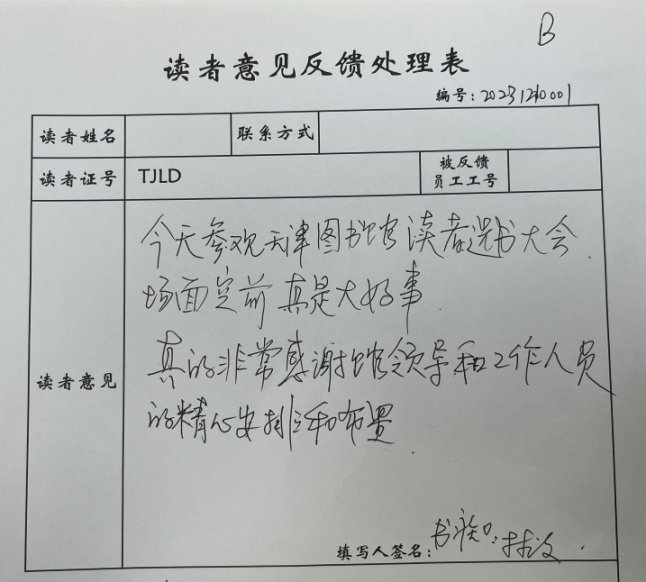 B
读者意见反馈处理表
编号：20231210001
读者姓名 联系方式
读者证号 TJLD 被反馈员工工号
读者意见
今天参观天津图书馆读者选书大会
场面空前 真是大好事
真的非常感谢馆领导和工作人员
的精心安排和布置
填写人签名：书痴